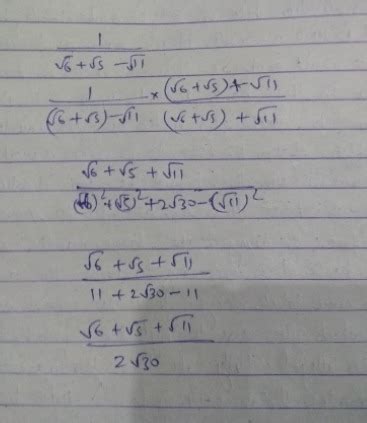 1
√6 + √5 - √11
1 × (√6 + √5) + √11
(√6 + √5) - √11 (√6 + √5) + √11
√6 + √5 + √11
(√6)² + (√5)² + 2√30 - (√11)²
√6 + √5 + √11
11 + 2√30 - 11
√6 + √5 + √11
2√30